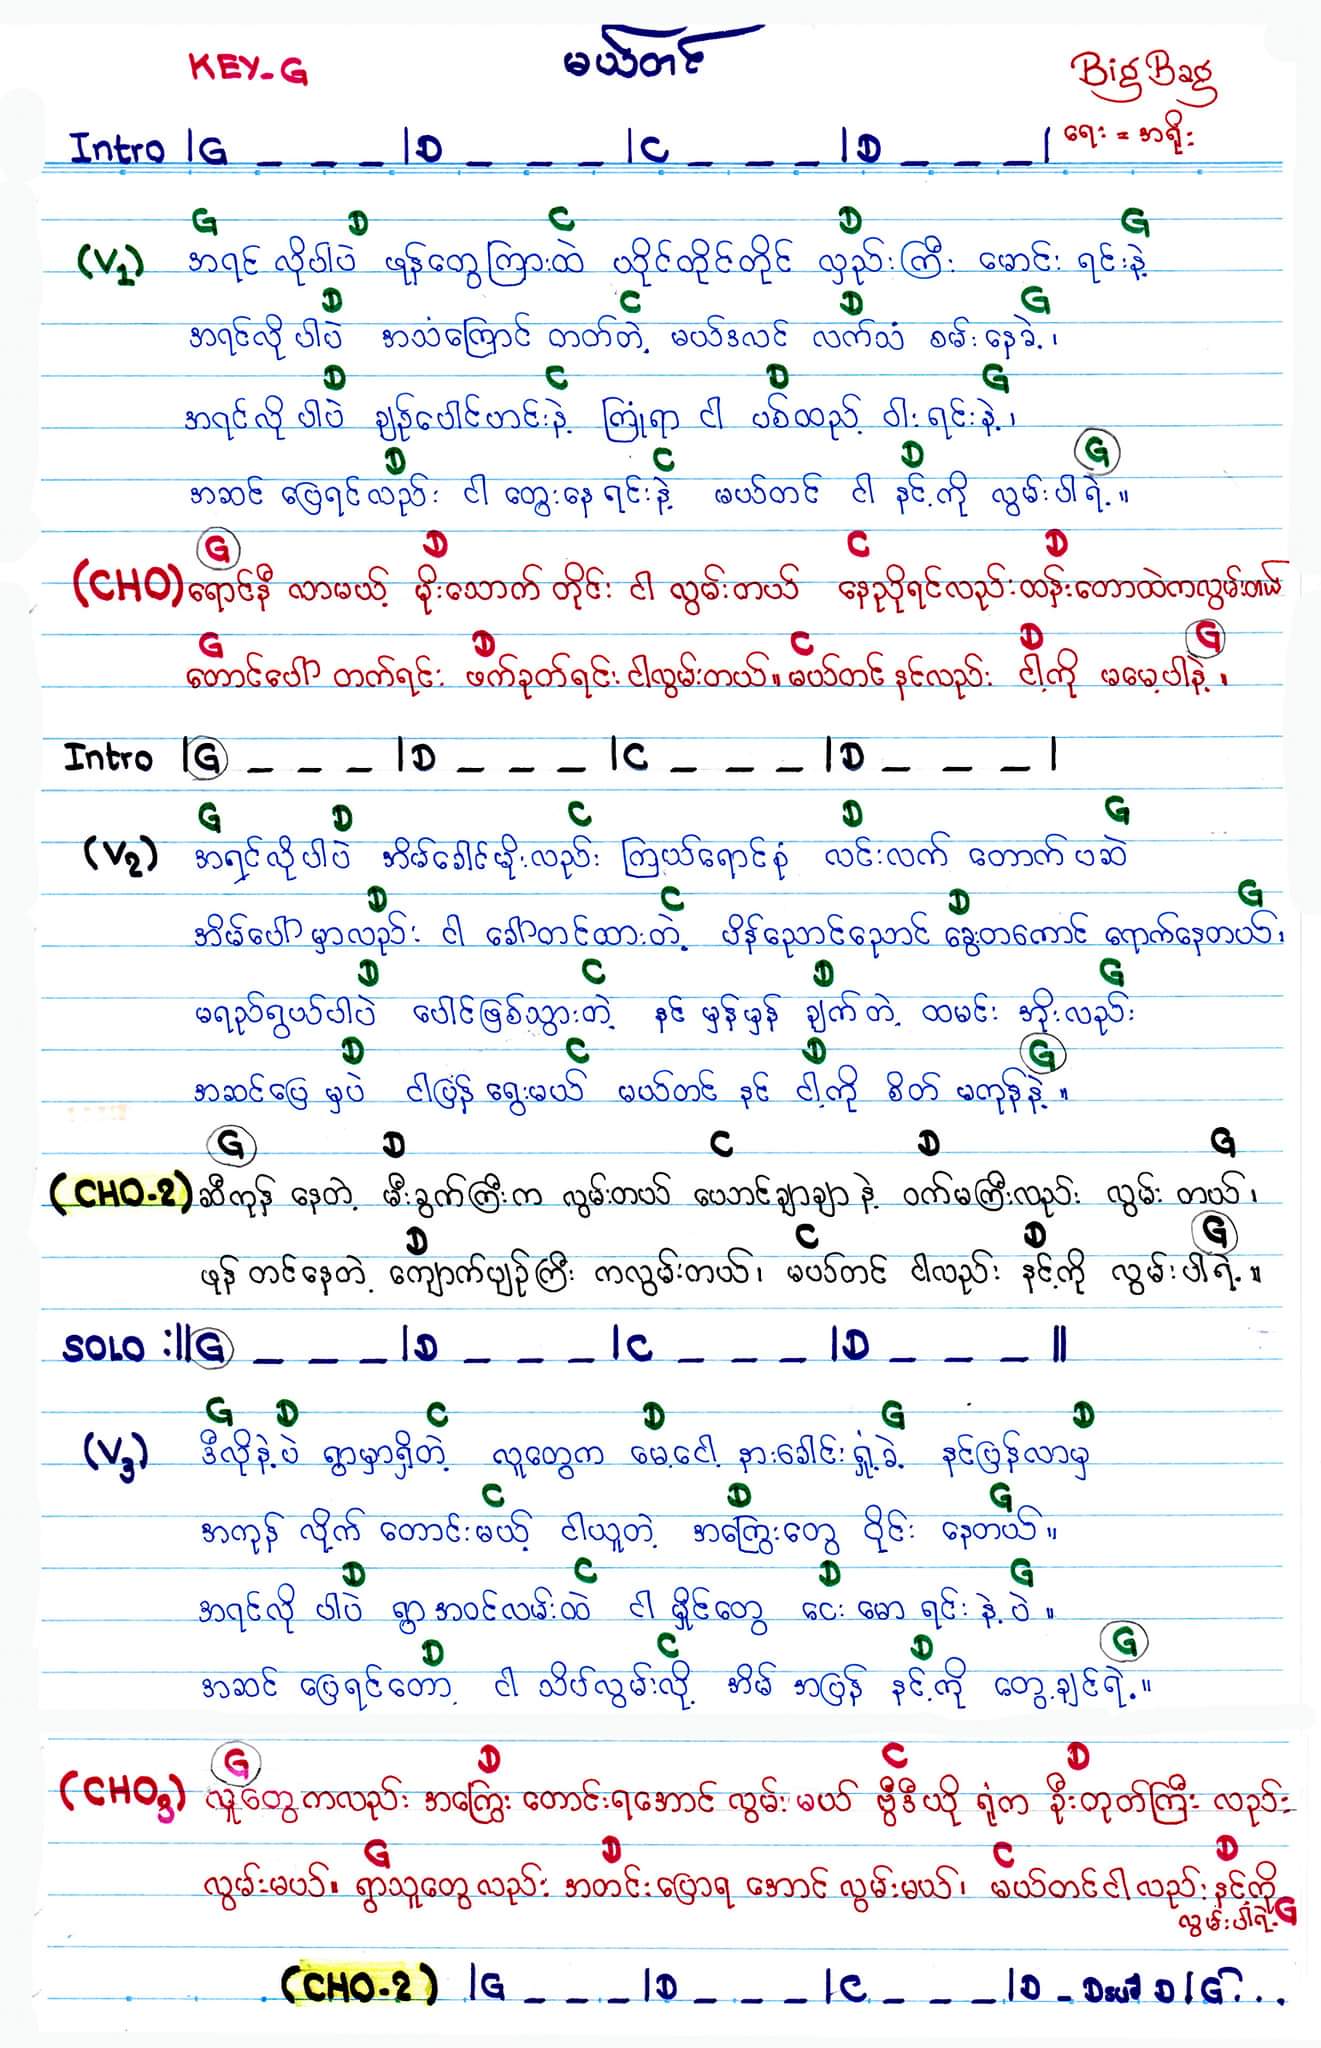 KEY-G မယ်တင် Big Bag
ရေး = အရိုး
Intro |G _ _ _ |D _ _ _ |C _ _ _ |D _ _ _ |
G D C D G
(V1) အရင်လိုပါပဲ ဖုန်တွေကြားထဲ ယိုင်တိုင်တိုင် လှည်းကြီး မောင်းရင်းနဲ့
D C D G
အရင်လိုပါပဲ အသံကြောင် တတ်တဲ့ မယ်ဒလင် လက်သံ စမ်းနေခဲ့၊
D C D G
အရင်လိုပါပဲ ချဉ်ပေါင်ဟင်းနဲ့ ကြုံရာ ငါ ပစ်ထည့် ဝါးရင်းနဲ့၊
D C D G
အဆင်ပြေရင်လည်း ငါ တွေးနေရင်းနဲ့ မယ်တင် ငါ နင့်ကို လွမ်းပါရဲ့။
G D C D
(CHO) ရောင်နီ လာမယ့် မိုးသောက်တိုင်း ငါ လွမ်းတယ် နေညိုရင်လည်း ထန်းတောထဲကလွမ်းတယ်
G D C D G
တောင်ပေါ် တက်ရင်း ဖက်ခုတ်ရင်း ငါလွမ်းတယ်။ မယ်တင် နင်လည်း ငါ့ကို မမေ့ပါနဲ့၊
Intro |G _ _ _ |D _ _ _ |C _ _ _ |D _ _ _ |
G D C D G
(V2) အရင်လိုပါပဲ အိမ်ခေါင်မိုးလည်း ကြယ်ရောင်စုံ လင်းလက် တောက်ပဆဲ
D C D G
အိမ်ပေါ်မှာလည်း ငါ ခေါ်တင်ထားတဲ့ ပိန်ညှောင်ညှောင် ခွေးတကောင် ရောက်နေတယ်၊
D C D G
မရည်ရွယ်ပါပဲ ပေါင်ဖြစ်သွားတဲ့ နင် မှန်မှန် ချက်တဲ့ ထမင်းအိုးလည်း
D C D G
အဆင်ပြေမှပဲ ငါပြန်ရွေးမယ် မယ်တင် နင် ငါ့ကို စိတ် မကုန်နဲ့။
G D C D G
(CHO-2) ဆီကုန် နေတဲ့ မီးခွက်ကြီးက လွမ်းတယ် ယောင်ချာချာ နဲ့ ဝက်မကြီးလည်း လွမ်းတယ်၊
D C D G
ဖုန် တင်နေတဲ့ ကျောက်ပျဉ်ကြီး ကလွမ်းတယ်၊ မယ်တင် ငါလည်း နင့်ကို လွမ်းပါရဲ့။
SOLO :||G _ _ _ |D _ _ _ |C _ _ _ |D _ _ _ ||
G D C D G D
(V3) ဒီလိုနဲ့ပဲ ရွာမှာရှိတဲ့ လူတွေက မေ့ငေါ့ နားခေါင်းရှုံ့ခဲ့ နင်ပြန်လာမှ
C D G
အကုန် လိုက် တောင်းမယ့် ငါယူတဲ့ အကြွေးတွေ ဝိုင်း နေတယ်။
D C D G
အရင်လိုပါပဲ ရွာအဝင်လမ်းထဲ ငါ မှိုင်တွေ ငေးမောရင်းနဲ့ပဲ။
D C D G
အဆင်ပြေရင်တော့ ငါ သိပ်လွမ်းလို့ အိမ် အပြန် နင့်ကို တွေ့ချင်ရဲ့။
G D C D
(CHO3) လူတွေကလည်း အကြွေး တောင်းရအောင် လွမ်းမယ် ဗွီဒီယို ရုံက ဦးတုတ်ကြီး လည်း
G D C D
လွမ်းမယ်။ ရွာသူတွေလည်း အတင်းပြောရအောင် လွမ်းမယ်၊ မယ်တင်ငါလည်း နင့်ကို
လွမ်းပါရဲ့ G
(CHO-2) |G _ _ _ |D _ _ _ |C _ _ _ |D _ D D |G ...